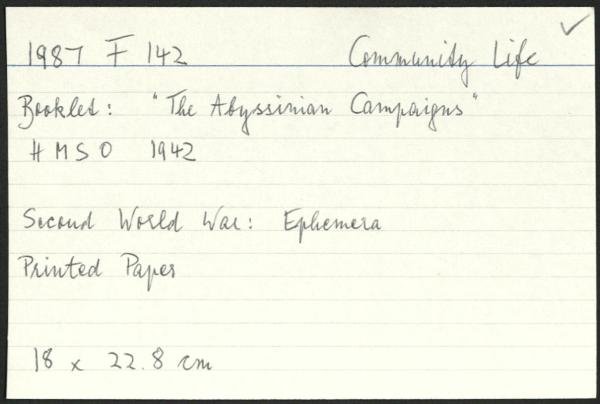 1987 F 142 Community Life
Booklet: "The Abyssinian Campaigns"
HMSO 1942
Second World War: Ephemera
Printed Paper
18 x 22.8 cm